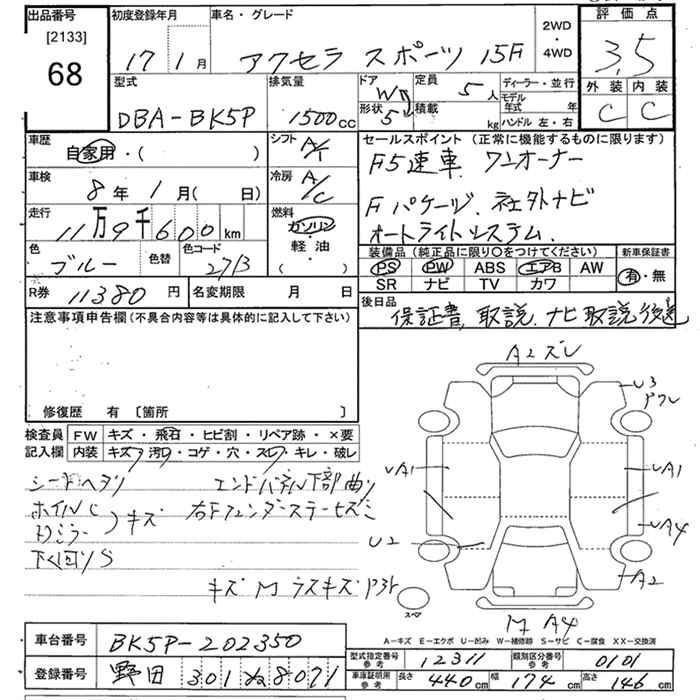 出品番号 初度登録年月 車名・グレード 2WD・4WD 評価点
[2133]
68 17 1月 アクセラ スポーツ 15F 3.5
型式 排気量 ドア W 定員 5人 ディーラー・並行 外装 内装
DBA-BK5P 1500cc 形状 5 積載 kg モデル年式 年 C C
ハンドル 左・右
車歴 シフト A/T セールスポイント (正常に機能するものに限ります)
自家用・( ) F5速車 ワンオーナー
車検 8年 1月 ( 日) 冷房 A/C Fパケージ、社外ナビ
走行 11万9千600km 燃料 ガソリン・軽油・( ) オートライトシステム、
色 ブルー 色替 色コード 27B 装備品 (純正品に限り○をつけてください) 新車保証書
PS PW ABS エアB AW 有・無
SR ナビ TV カワ
R券 11380円 名変期限 月 日 後日品
保証書、取説、ナビ取説後送
注意事項申告欄 (不具合内容等は具体的に記入して下さい)
修復歴 有 〔箇所 〕
検査員 FW キズ・飛石・ヒビ割・リペア跡・×要
記入欄 内装 キズ・汚レ・コゲ・穴・スレ・キレ・破レ
シートヘタリ エンドパネル下部曲リ
ホイルC キズ 右Fフェンダーステー
下回りS
キズM
A2 ズレ
U3
UA1 UA1
UA4
U2
A2
スペア
M A4
A-キズ E-エクボ U-凹み W-補修跡 S-サビ C-腐食 XX-交換済
車台番号 BK5P-202350
型式指定番号 参考 12311 類別区分番号 参考 0101
登録番号 野田 301 ぬ 8071
車庫証明用 参考 長さ 440cm 幅 174cm 高さ 146cm